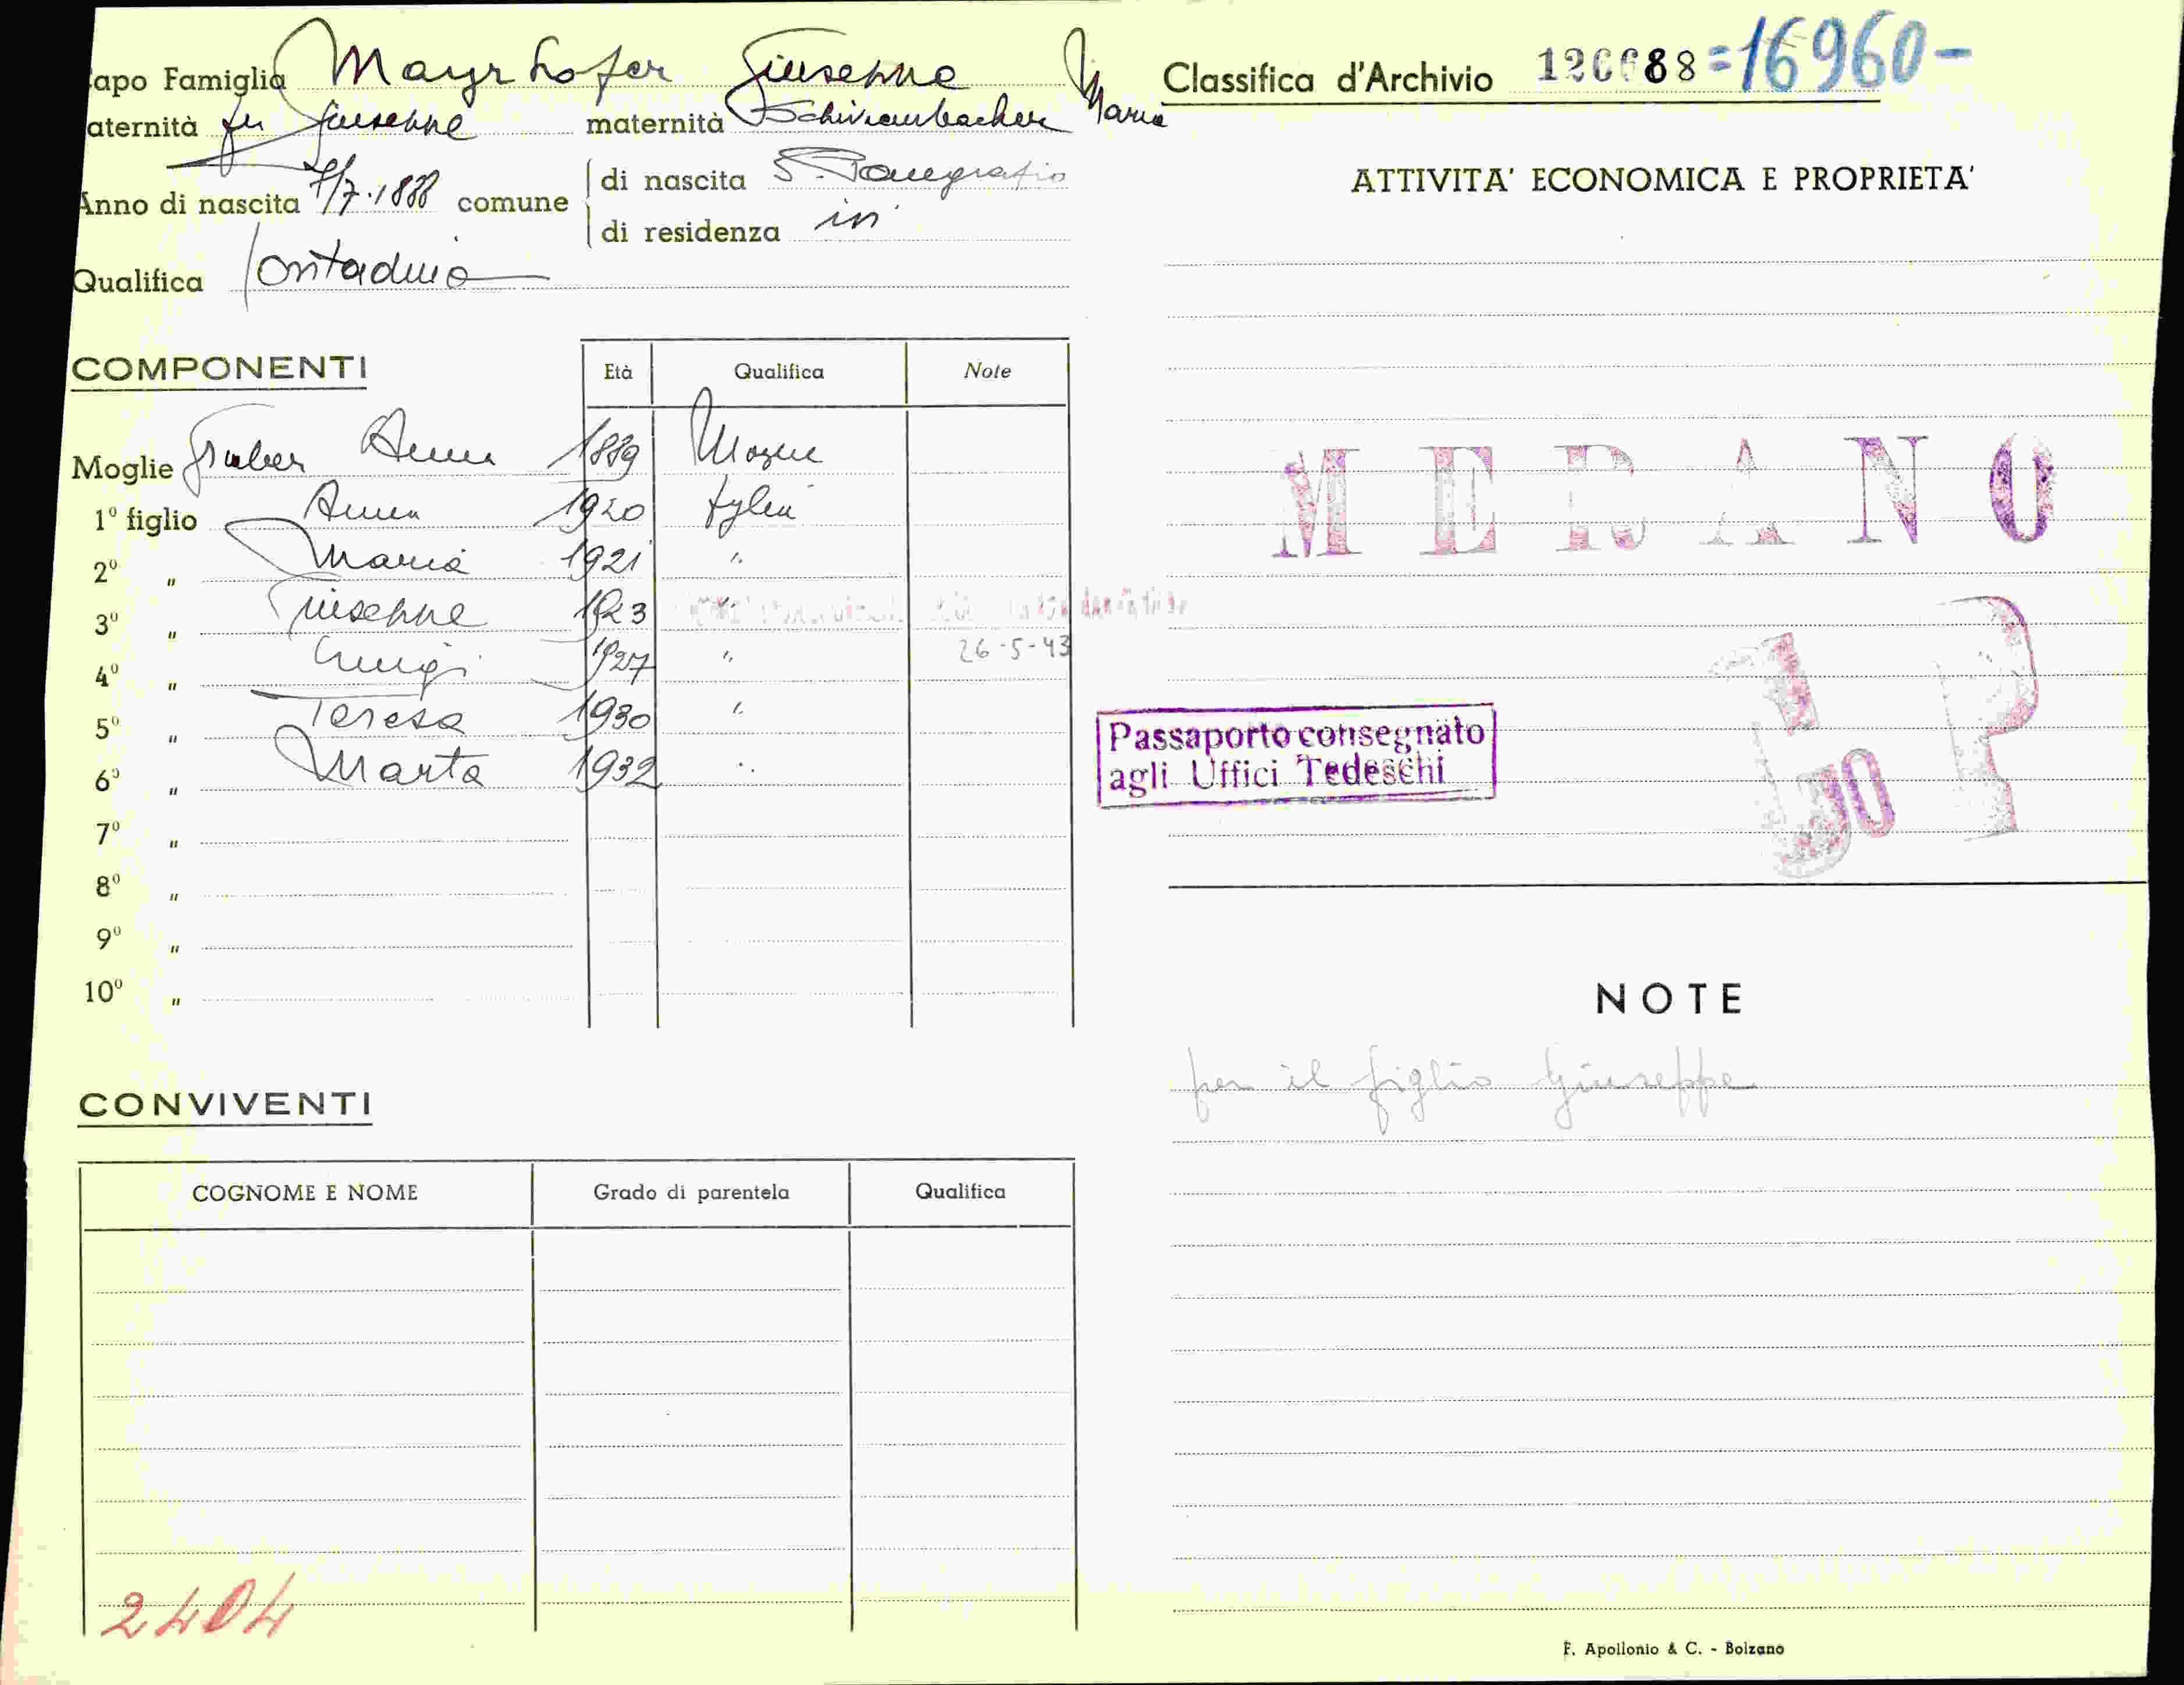 apo Famiglia Mayrhofer Giuseppe
aternità fu Giuseppe maternità Maria
Anno di nascita 7/7.1888 comune di nascita S. Pancrazio
di residenza ivi
Qualifica Contadino
COMPONENTI Età Qualifica Note
Moglie Gruber Anna 1889 Moglie
1° figlio Anna 1920 figlia
2° " Maria 1921 "
3° " Giuseppe 1923 "
4° " Luigi 1927 " 26-5-43
5° " Teresa 1930 "
6° " Marta 1932 "
7° "
8° "
9° "
10° "
CONVIVENTI
COGNOME E NOME Grado di parentela Qualifica
2404
Classifica d'Archivio 126688 = 16960-
ATTIVITA' ECONOMICA E PROPRIETA'
MERANO
Passaporto consegnato
agli Uffici Tedeschi
NOTE
per il figlio Giuseppe
F. Apollonio & C. - Bolzano